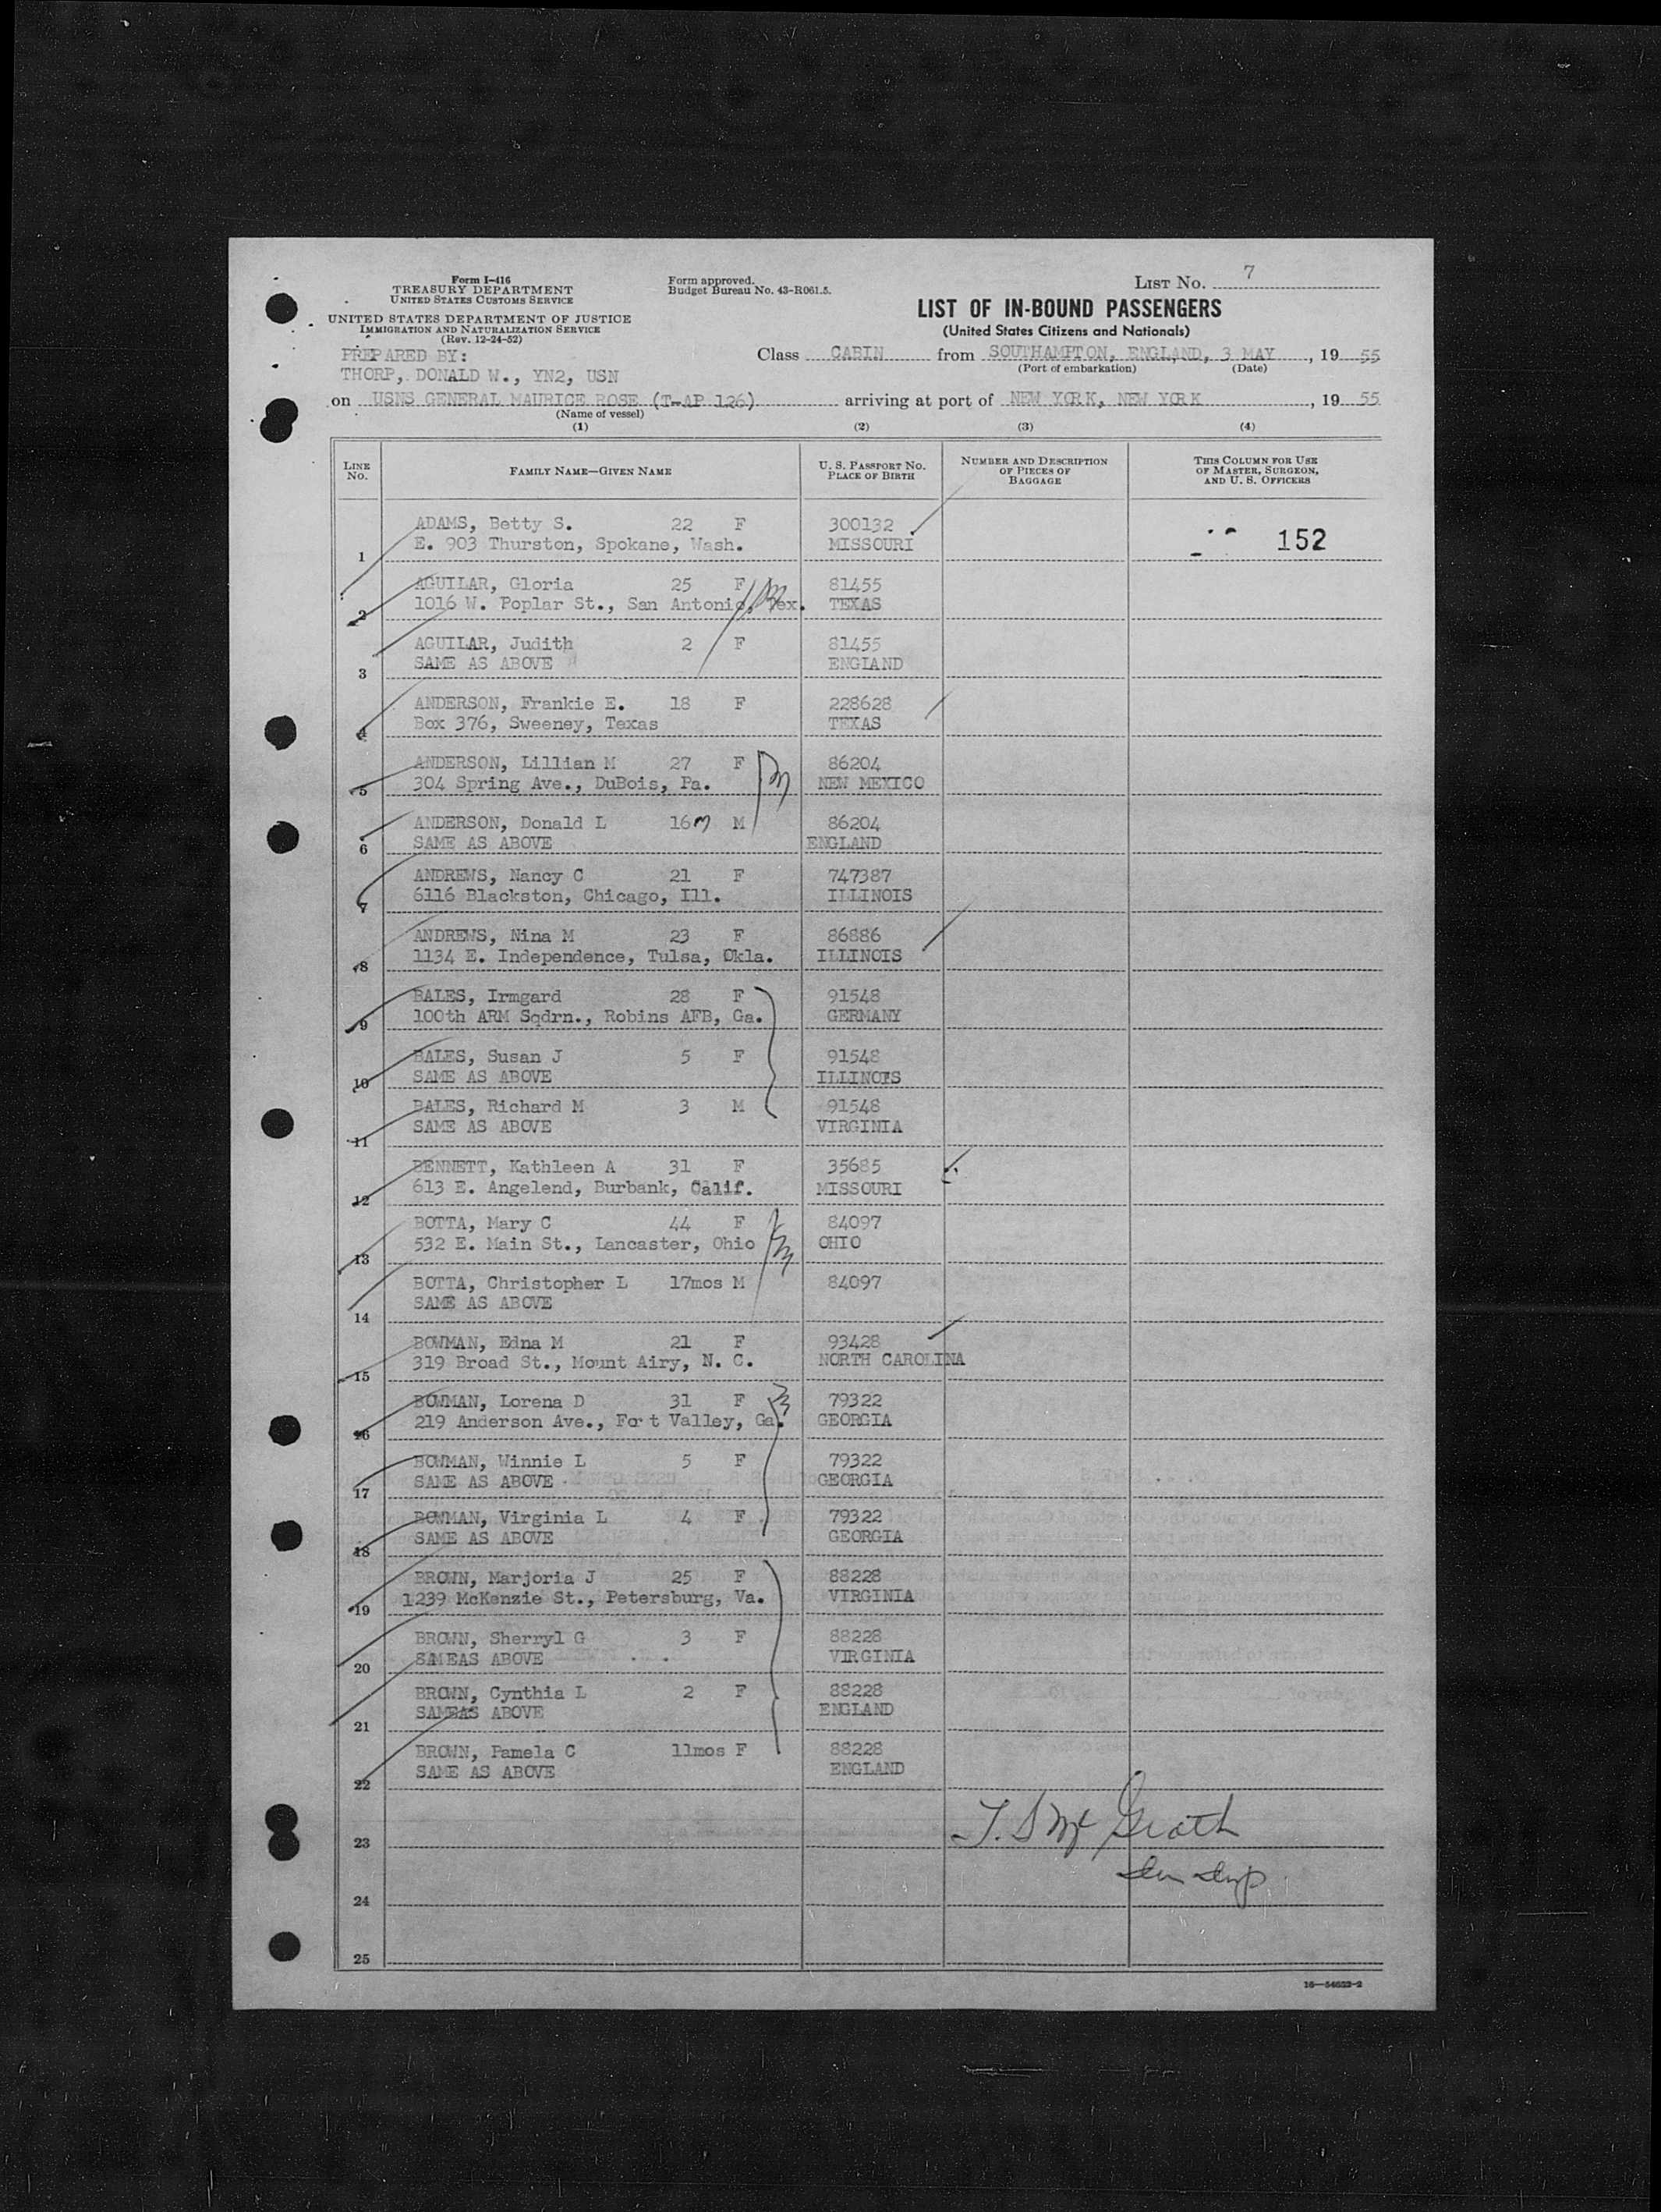 Form I-416
TREASURY DEPARTMENT
UNITED STATES CUSTOMS SERVICE
UNITED STATES DEPARTMENT OF JUSTICE
IMMIGRATION AND NATURALIZATION SERVICE
(Rev. 12-24-52)
Form approved.
Budget Bureau No. 43-R061.5.
LIST No. 7
LIST OF IN-BOUND PASSENGERS
(United States Citizens and Nationals)
PREPARED BY:
THORP, DONALD W., YN2, USN
Class CABIN from SOUTHAMPTON, ENGLAND, 3 MAY, 19 55
(Port of embarkation) (Date)
on USNS GENERAL MAURICE ROSE (T-AP 126) arriving at port of NEW YORK, NEW YORK, 19 55
(Name of vessel)
(1) (2) (3) (4)
LINE No. FAMILY NAME—GIVEN NAME U. S. PASSPORT NO. PLACE OF BIRTH NUMBER AND DESCRIPTION OF PIECES OF BAGGAGE THIS COLUMN FOR USE OF MASTER, SURGEON, AND U. S. OFFICERS
ADAMS, Betty S. 22 F 300132
1 E. 903 Thurston, Spokane, Wash. MISSOURI 152
AGUILAR, Gloria 25 F 81455
2 1016 W. Poplar St., San Antonio, Tex. TEXAS
AGUILAR, Judith 2 F 81455
3 SAME AS ABOVE ENGLAND
ANDERSON, Frankie E. 18 F 228628
4 Box 376, Sweeney, Texas TEXAS
ANDERSON, Lillian M 27 F 86204
5 304 Spring Ave., DuBois, Pa. NEW MEXICO
ANDERSON, Donald L 16m M 86204
6 SAME AS ABOVE ENGLAND
ANDREWS, Nancy C 21 F 747387
7 6116 Blackston, Chicago, Ill. ILLINOIS
ANDREWS, Nina M 23 F 86886
8 1134 E. Independence, Tulsa, Okla. ILLINOIS
BALES, Irmgard 28 F 91548
9 100th ARM Sqdrn., Robins AFB, Ga. GERMANY
BALES, Susan J 5 F 91548
10 SAME AS ABOVE ILLINOIS
BALES, Richard M 3 M 91548
11 SAME AS ABOVE VIRGINIA
BENNETT, Kathleen A 31 F 35685
12 613 E. Angelend, Burbank, Calif. MISSOURI
BOTTA, Mary C 44 F 84097
13 532 E. Main St., Lancaster, Ohio OHIO
BOTTA, Christopher L 17mos M 84097
14 SAME AS ABOVE
BOWMAN, Edna M 21 F 93428
15 319 Broad St., Mount Airy, N. C. NORTH CAROLINA
BOWMAN, Lorena D 31 F 79322
16 219 Anderson Ave., Fort Valley, Ga. GEORGIA
BOWMAN, Winnie L 5 F 79322
17 SAME AS ABOVE GEORGIA
BOWMAN, Virginia L 4 F 79322
18 SAME AS ABOVE GEORGIA
BROWN, Marjoria J 25 F 88228
19 1239 McKenzie St., Petersburg, Va. VIRGINIA
BROWN, Sherryl G 3 F 88228
20 SAMEAS ABOVE VIRGINIA
BROWN, Cynthia L 2 F 88228
21 SAMEAS ABOVE ENGLAND
BROWN, Pamela C 11mos F 88228
22 SAME AS ABOVE ENGLAND
23 T. S McGrath
24
25
16—54622-2